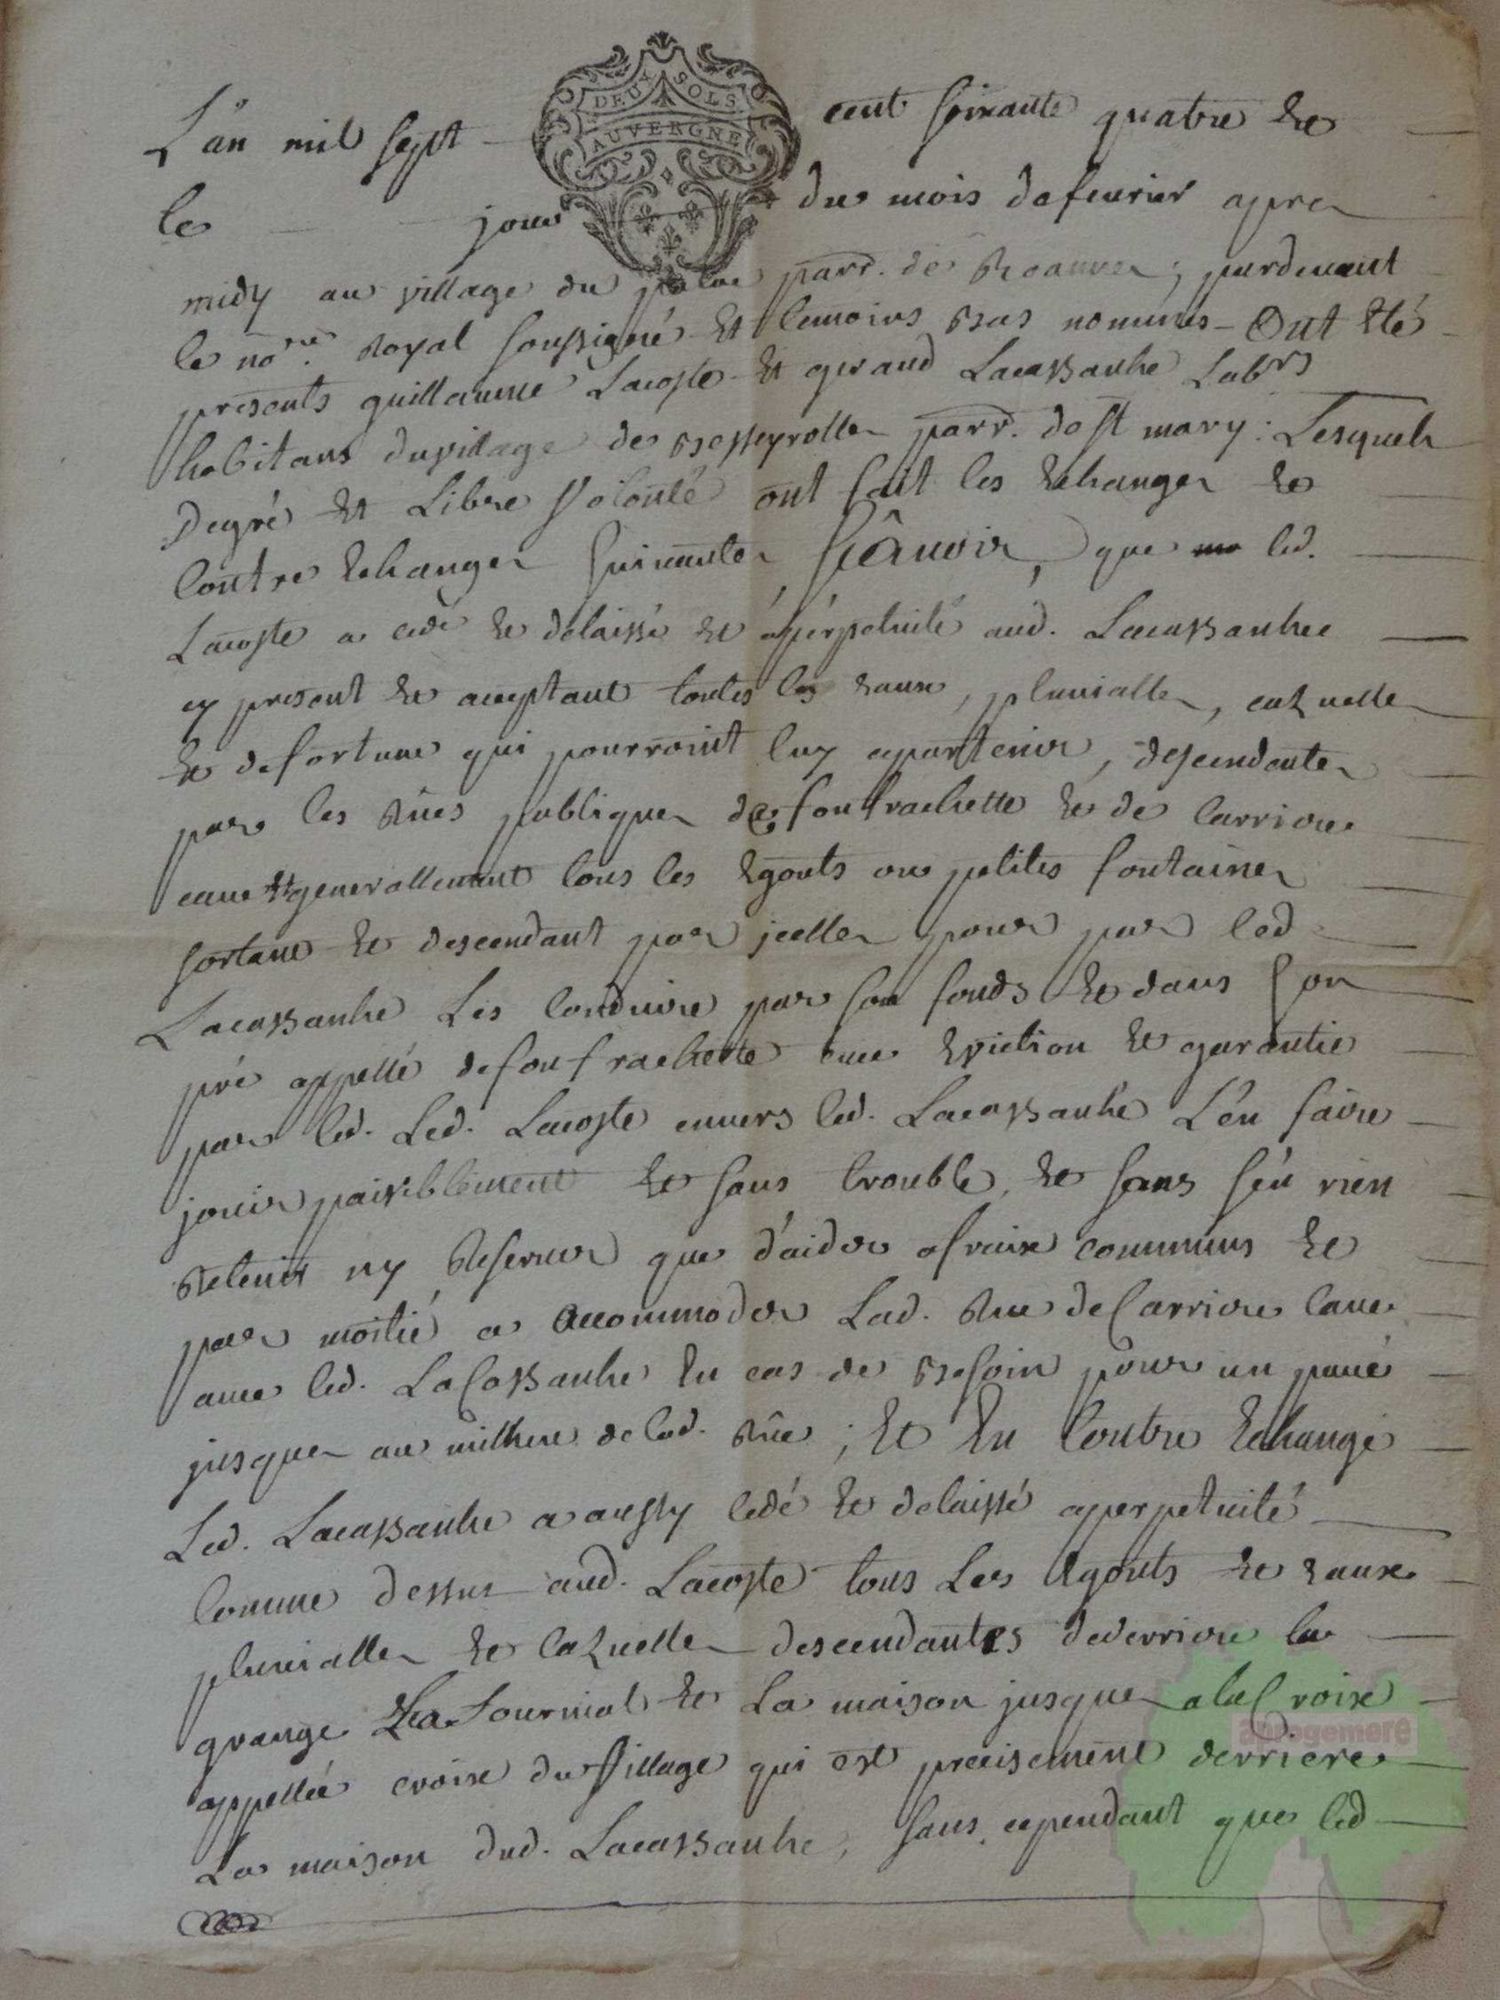 DEUX SOLS
AUVERGNE
L'an mil sept cent soixante quatre et
le jour du mois de feurier apres
midy au village du parr. de ; pardeuant
le no.re Royal soussigné et temoins bas nommés - Ont été
presents guillaume Lacoste et geraud Lacassanhe Lab.rs
habitans du village de Besseyrolles parr. de st mary : Lesquels
de gré et Libre Volonté ont fait les Echanges et
Contre Echanges suivantes, sçâuoir, que led.
Lacoste a cedé et delaissé et a perpetuité aud. Lacassanhe
cy present et aceptant toutes les eaux, pluvialles, cazuelles
et de fortune qui pourroint luy apartenir, descendentes
par les Rües publiques de fonfrachette et de Carriere
caue et generallement tous les Egouts ou petites fontaines
sortant et descendant par jcelles pour par led
Lacassanhe Les Conduire par son fonds et dans son
pré appellé de fonfrachette auec Eviction et garantie
par led. Led. Lacoste enuers led. Lacassanhe L'en faire
jouir paisiblement et sans trouble, et sans s'en rien
Retenir ny Reseruer que d'aider a fraix communs et
par moitié a accommoder Lad. Rue de Carriere Caue
auec led. LaCassanhe En cas de Besoin pour un paué
jusques au millieu de lad. Rüe ; Et En Contre Echange
Led. Lacassanhe a aussy Cedé et delaissé a perpetuité
Comme dessus aud. Lacoste tous Les Agouts et eaux
pluvialles et Cazuelles descendantes de derriere la
grange La fournial et La maison jusques a la Croix
appellée croix du Village qui est precisement derriere
La maison dud. Lacassanhe, sans cependant que led
aurogemere